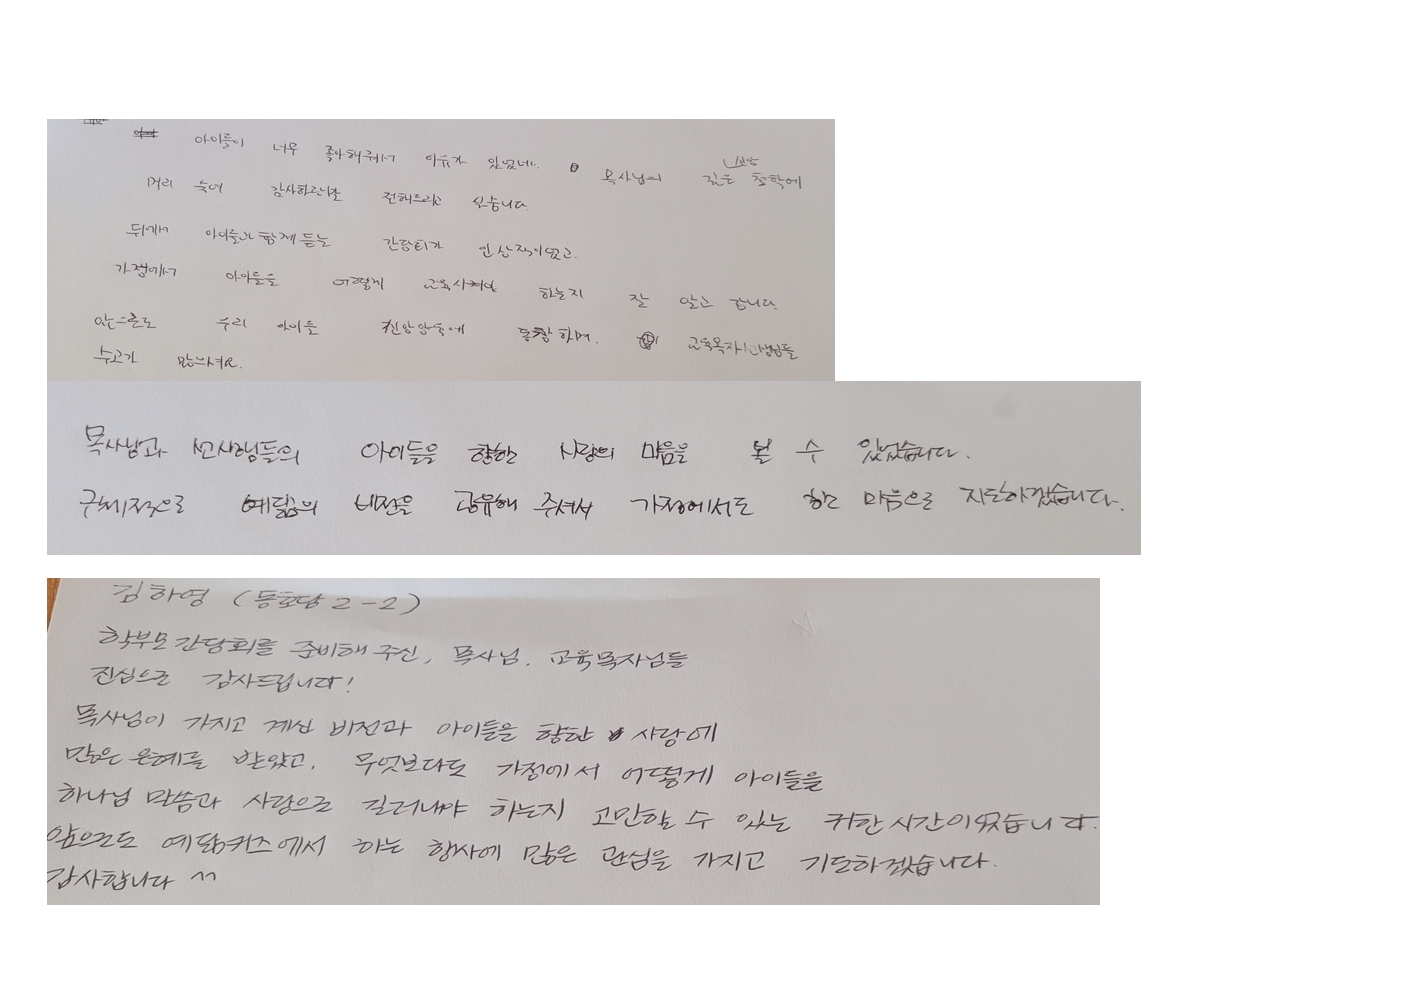 아이들이 너무 좋아해줘서 이유가 있었네. 목사님의 깊은 철학에
머리 숙여 감사하단 말 전해드리고 싶습니다.
뒤에서 아이들과 함께 듣는 간담회가 인상적이었고.
가정에서 아이들을 어떻게 교육시켜야 하는지 잘 알고 갑니다.
앞으로도 우리 아이들 신앙양육에 동참하며. 교육목자선생님들
수고가 많으셔요.
목사님과 선생님들의 아이들을 향한 사랑의 마음을 볼 수 있었습니다.
구체적으로 예닮의 비전을 공유해 주셔서 가정에서도 한 마음으로 지도하겠습니다.
김하영 (등호당 2-2)
학부모 간담회를 준비해 주신, 목사님, 교육목자님들
진심으로 감사드립니다!
목사님이 가지고 계신 비전과 아이들을 향한 사랑에
많은 은혜를 받았고, 무엇보다도 가정에서 어떻게 아이들을
하나님 말씀과 사랑으로 길러내야 하는지 고민할 수 있는 귀한 시간이었습니다.
앞으로도 예닮키즈에서 하는 행사에 많은 관심을 가지고 기도하겠습니다.
감사합니다 ^^